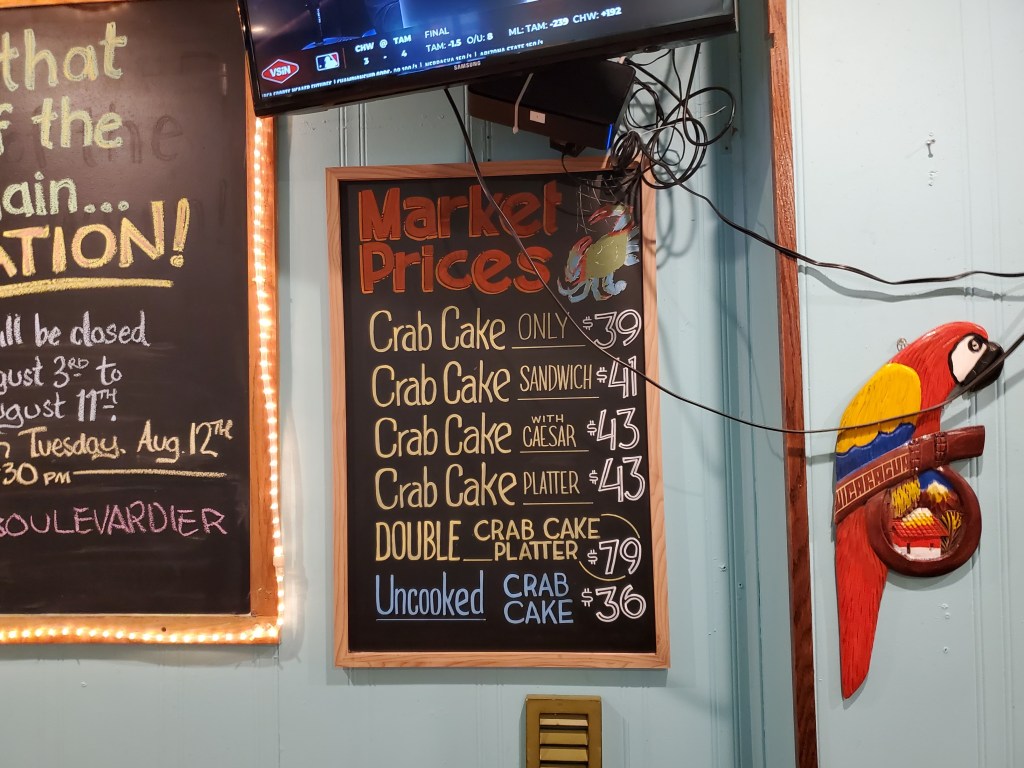 that
f the
ain...
ATION!
ll be closed
gust 3RD to
ugust 11TH.
n Tuesday, Aug. 12TH
:30 PM
BOULEVARDIER
CHW @ TAM FINAL ML: TAM: -239 CHW: +192
3 - 4 TAM: -1.5 O/U: 8
VSiN
SAMSUNG
Market
Prices
Crab Cake ONLY $39
Crab Cake SANDWICH $41
Crab Cake WITH CAESAR $43
Crab Cake PLATTER $43
DOUBLE CRAB CAKE PLATTER $79
Uncooked CRAB CAKE $36
NICARAGUA